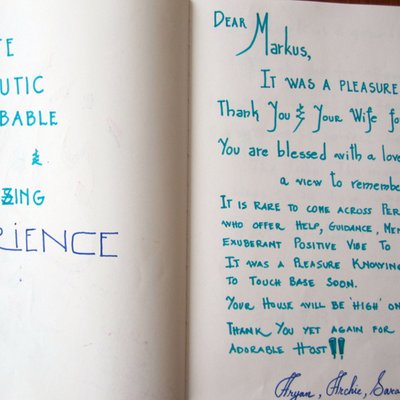 TE
UTIC
BABLE
&
ZING
RIENCE
DEAR Markus,
IT WAS A PLEASURE
Thank You & Your Wife fo
You are blessed with a love
a view to remembe
IT IS RARE TO COME ACROSS PER
WHO OFFER HELP, GUIDANCE, MEN
EXUBERANT POSITIVE VIBE TO
IT WAS A PLEASURE KNOWING
TO TOUCH BASE SOON.
YOUR HOUSE WILL BE 'HIGH' ON
THANK YOU YET AGAIN FOR
ADORABLE HOST!!
Aryan, Archie, Sara